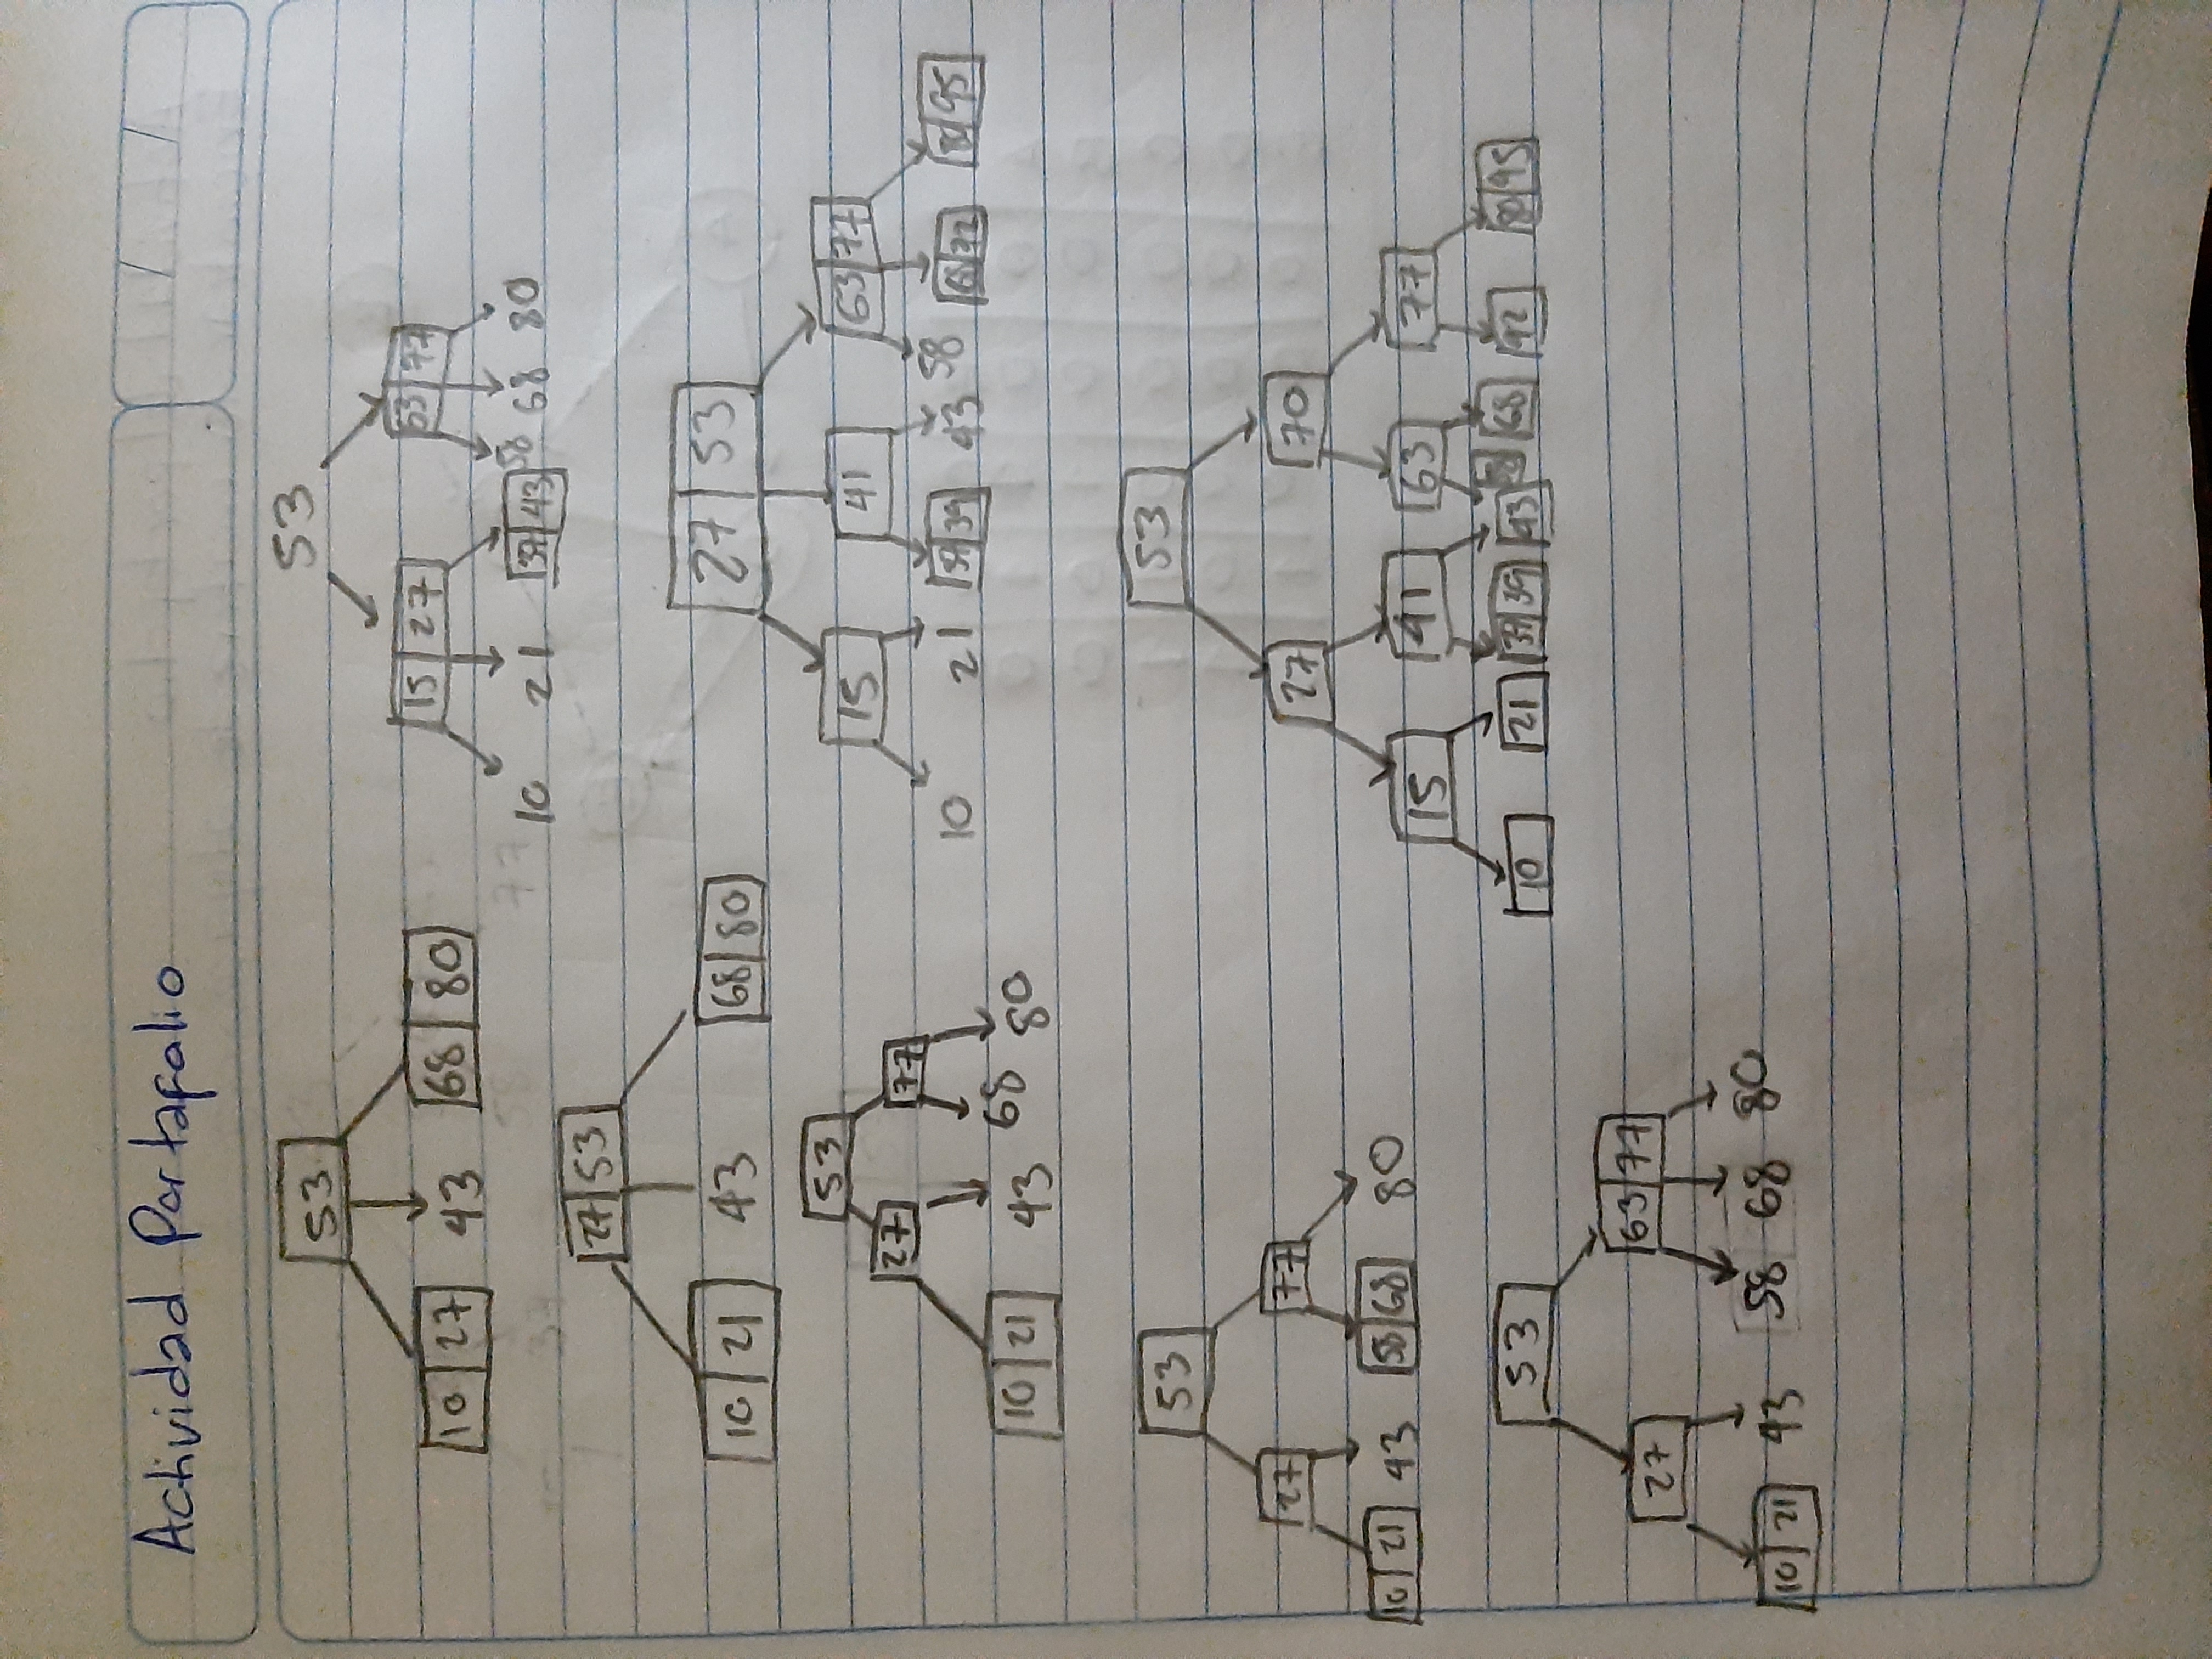 Actividad Portafolio
53
10 27 43 68 80
27 53
10 21 43 68 80
53
27 77
10 21 43 68 80
53
27 77
10 21 43 58 68 80
53
27 63 77
10 21 43 58 68 80
53
15 27 63 77
10 21 37 43 58 68 80
27 53
15 41 63 77
10 21 37 39 43 58 68 72 80 95
53
27 70
15 41 63 77
10 21 37 39 43 58 68 80 95